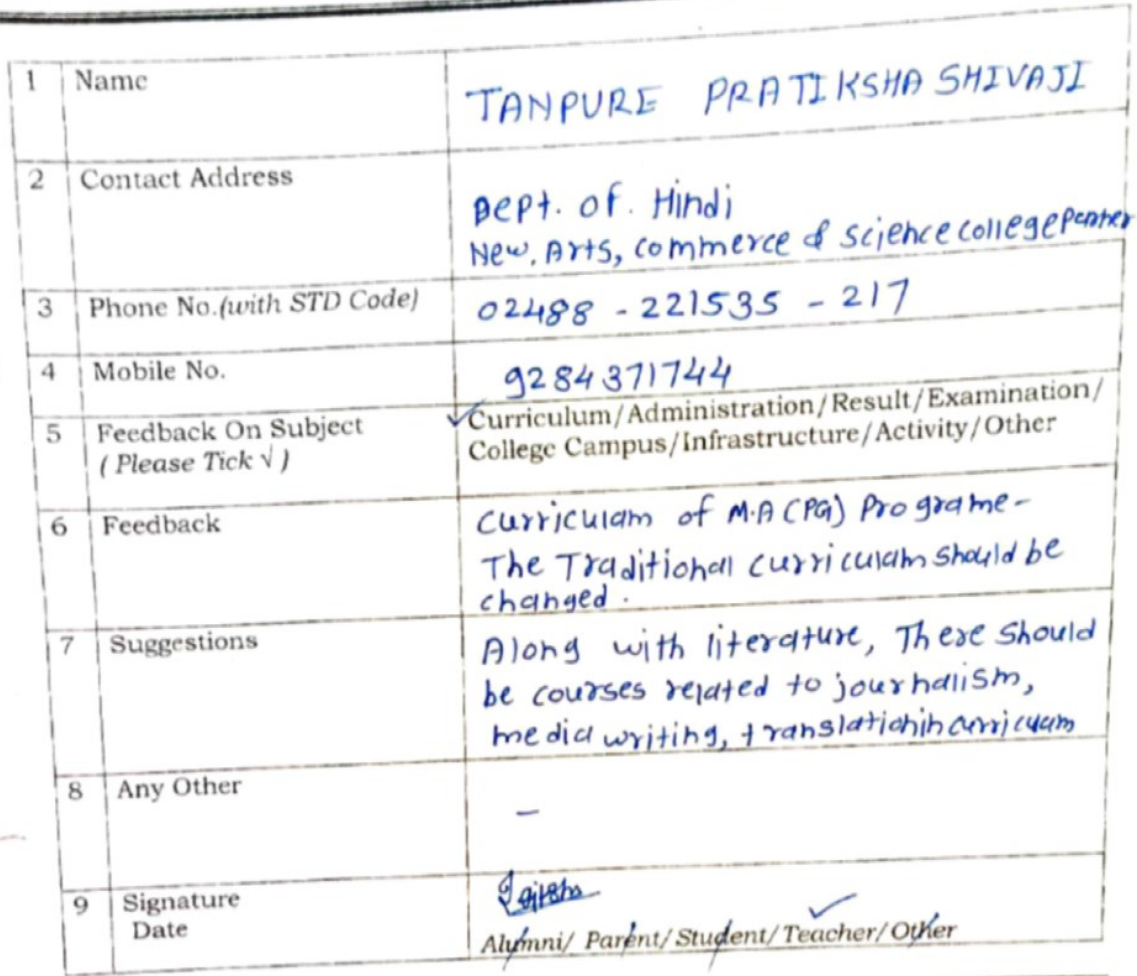 1 Name TANPURE PRATIKSHA SHIVAJI
2 Contact Address
Dept. of. Hindi
New. Arts, commerce & science college Parner
3 Phone No.(with STD Code) 02488 - 221535 - 217
4 Mobile No. 9284371744
5 Feedback On Subject ✓Curriculum/Administration/Result/Examination/
( Please Tick √ ) College Campus/Infrastructure/Activity/Other
6 Feedback Curriculam of M.A (PG) Programe-
The Traditional curriculam should be
changed.
7 Suggestions Along with literature, There should
be courses related to journalism,
media writing, translation in curricuam
8 Any Other
-
9 Signature
Date Alumni/ Parent/Student/Teacher/Other